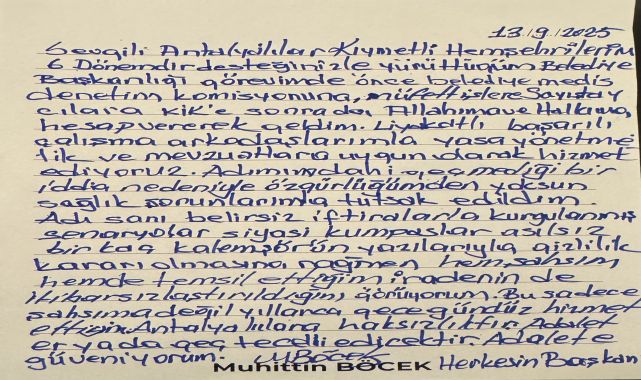 13/9/2025
Sevgili Antalyalılar Kıymetli Hemşehrilerim
6 Dönemdir desteğinizle yürüttüğüm Belediye
Başkanlığı görevimde önce belediye meclis
denetim komisyonuna, müfettişlere Sayıştay
cılara kik'e sonrada, Allahıma ve Halkıma,
hesap vererek geldim. Liyakatlı başarılı
çalışma arkadaşlarımla yasa yönetme
lik ve mevzuatlara uygun olarak hizmet
ediyoruz. Adımın dahi geçmediği bir
iddia nedeniyle özgürlüğümden yoksun
sağlık sorunlarımla tutsak edildim.
Adı sanı belirsiz iftiralarla kurgulanmış
senaryolar siyasi kumpaslar asılsız
bir kaç kalemşörün yazılarıyla gizlilik
kararı olmasına rağmen hem şahsım
hemde temsil ettiğim iradenin de
itibarsızlaştırıldığını görüyorum. Bu sadece
şahsıma değil yıllarca gece gündüz hizmet
ettiğim Antalyalılara haksızlıktır. Adalet
er yada geç tecelli edicektir. Adalete
güveniyorum. MBÖCEK Herkesin Başkanı
Muhittin BÖCEK